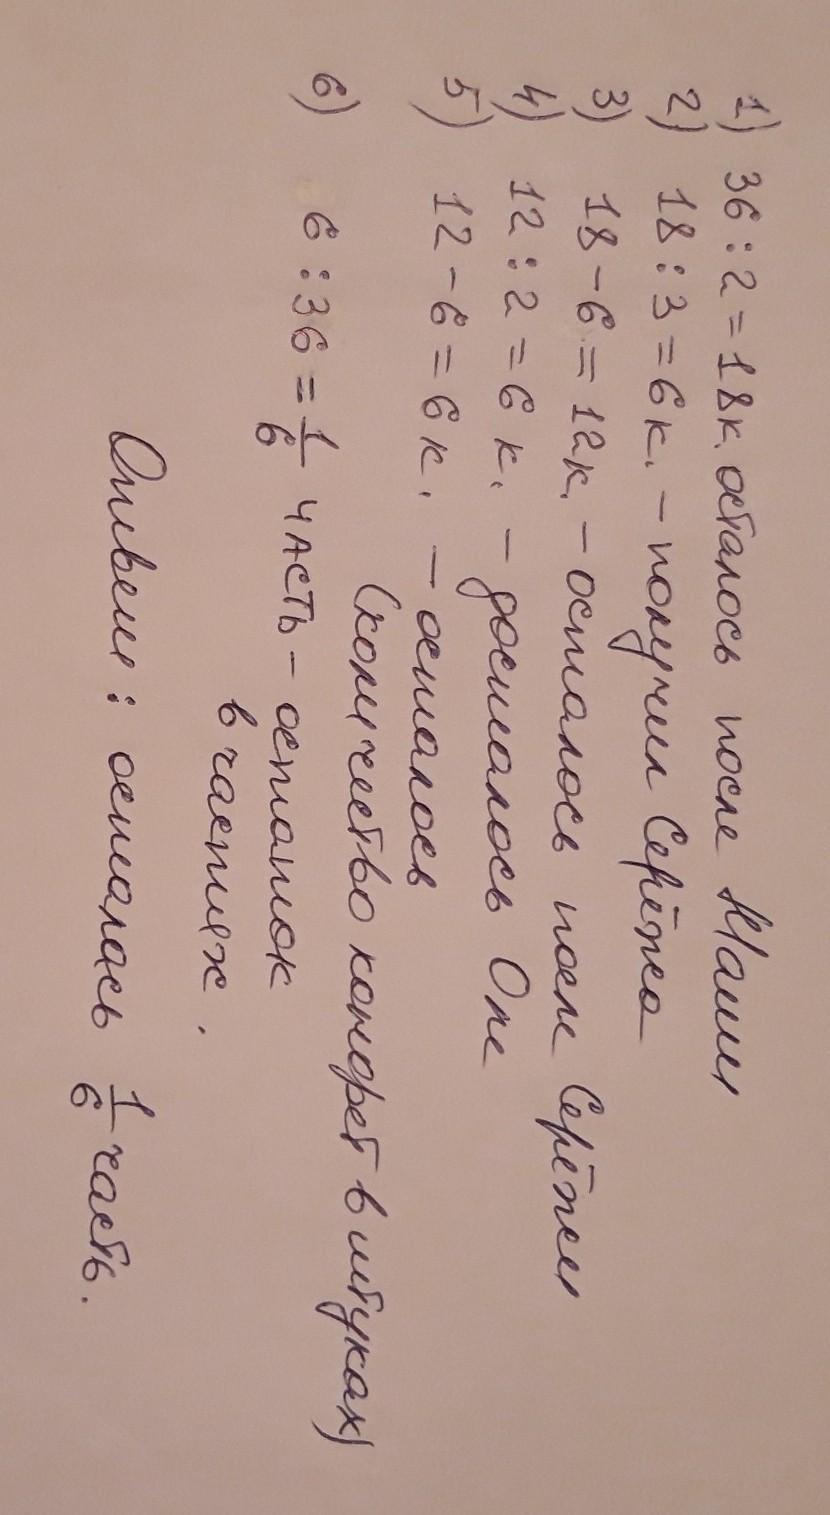 1) 36 : 2 = 18 к. осталось после Маши
2) 18 : 3 = 6 к. – получил Серёжа
3) 18 – 6 = 12 к. – осталось после Серёжи
4) 12 : 2 = 6 к. – досталось Оле
5) 12 – 6 = 6 к. – осталось
(количество конфет в штуках)
6) 6 : 36 = 1/6 часть – остаток
в частях.
Ответ : осталась 1/6 часть.